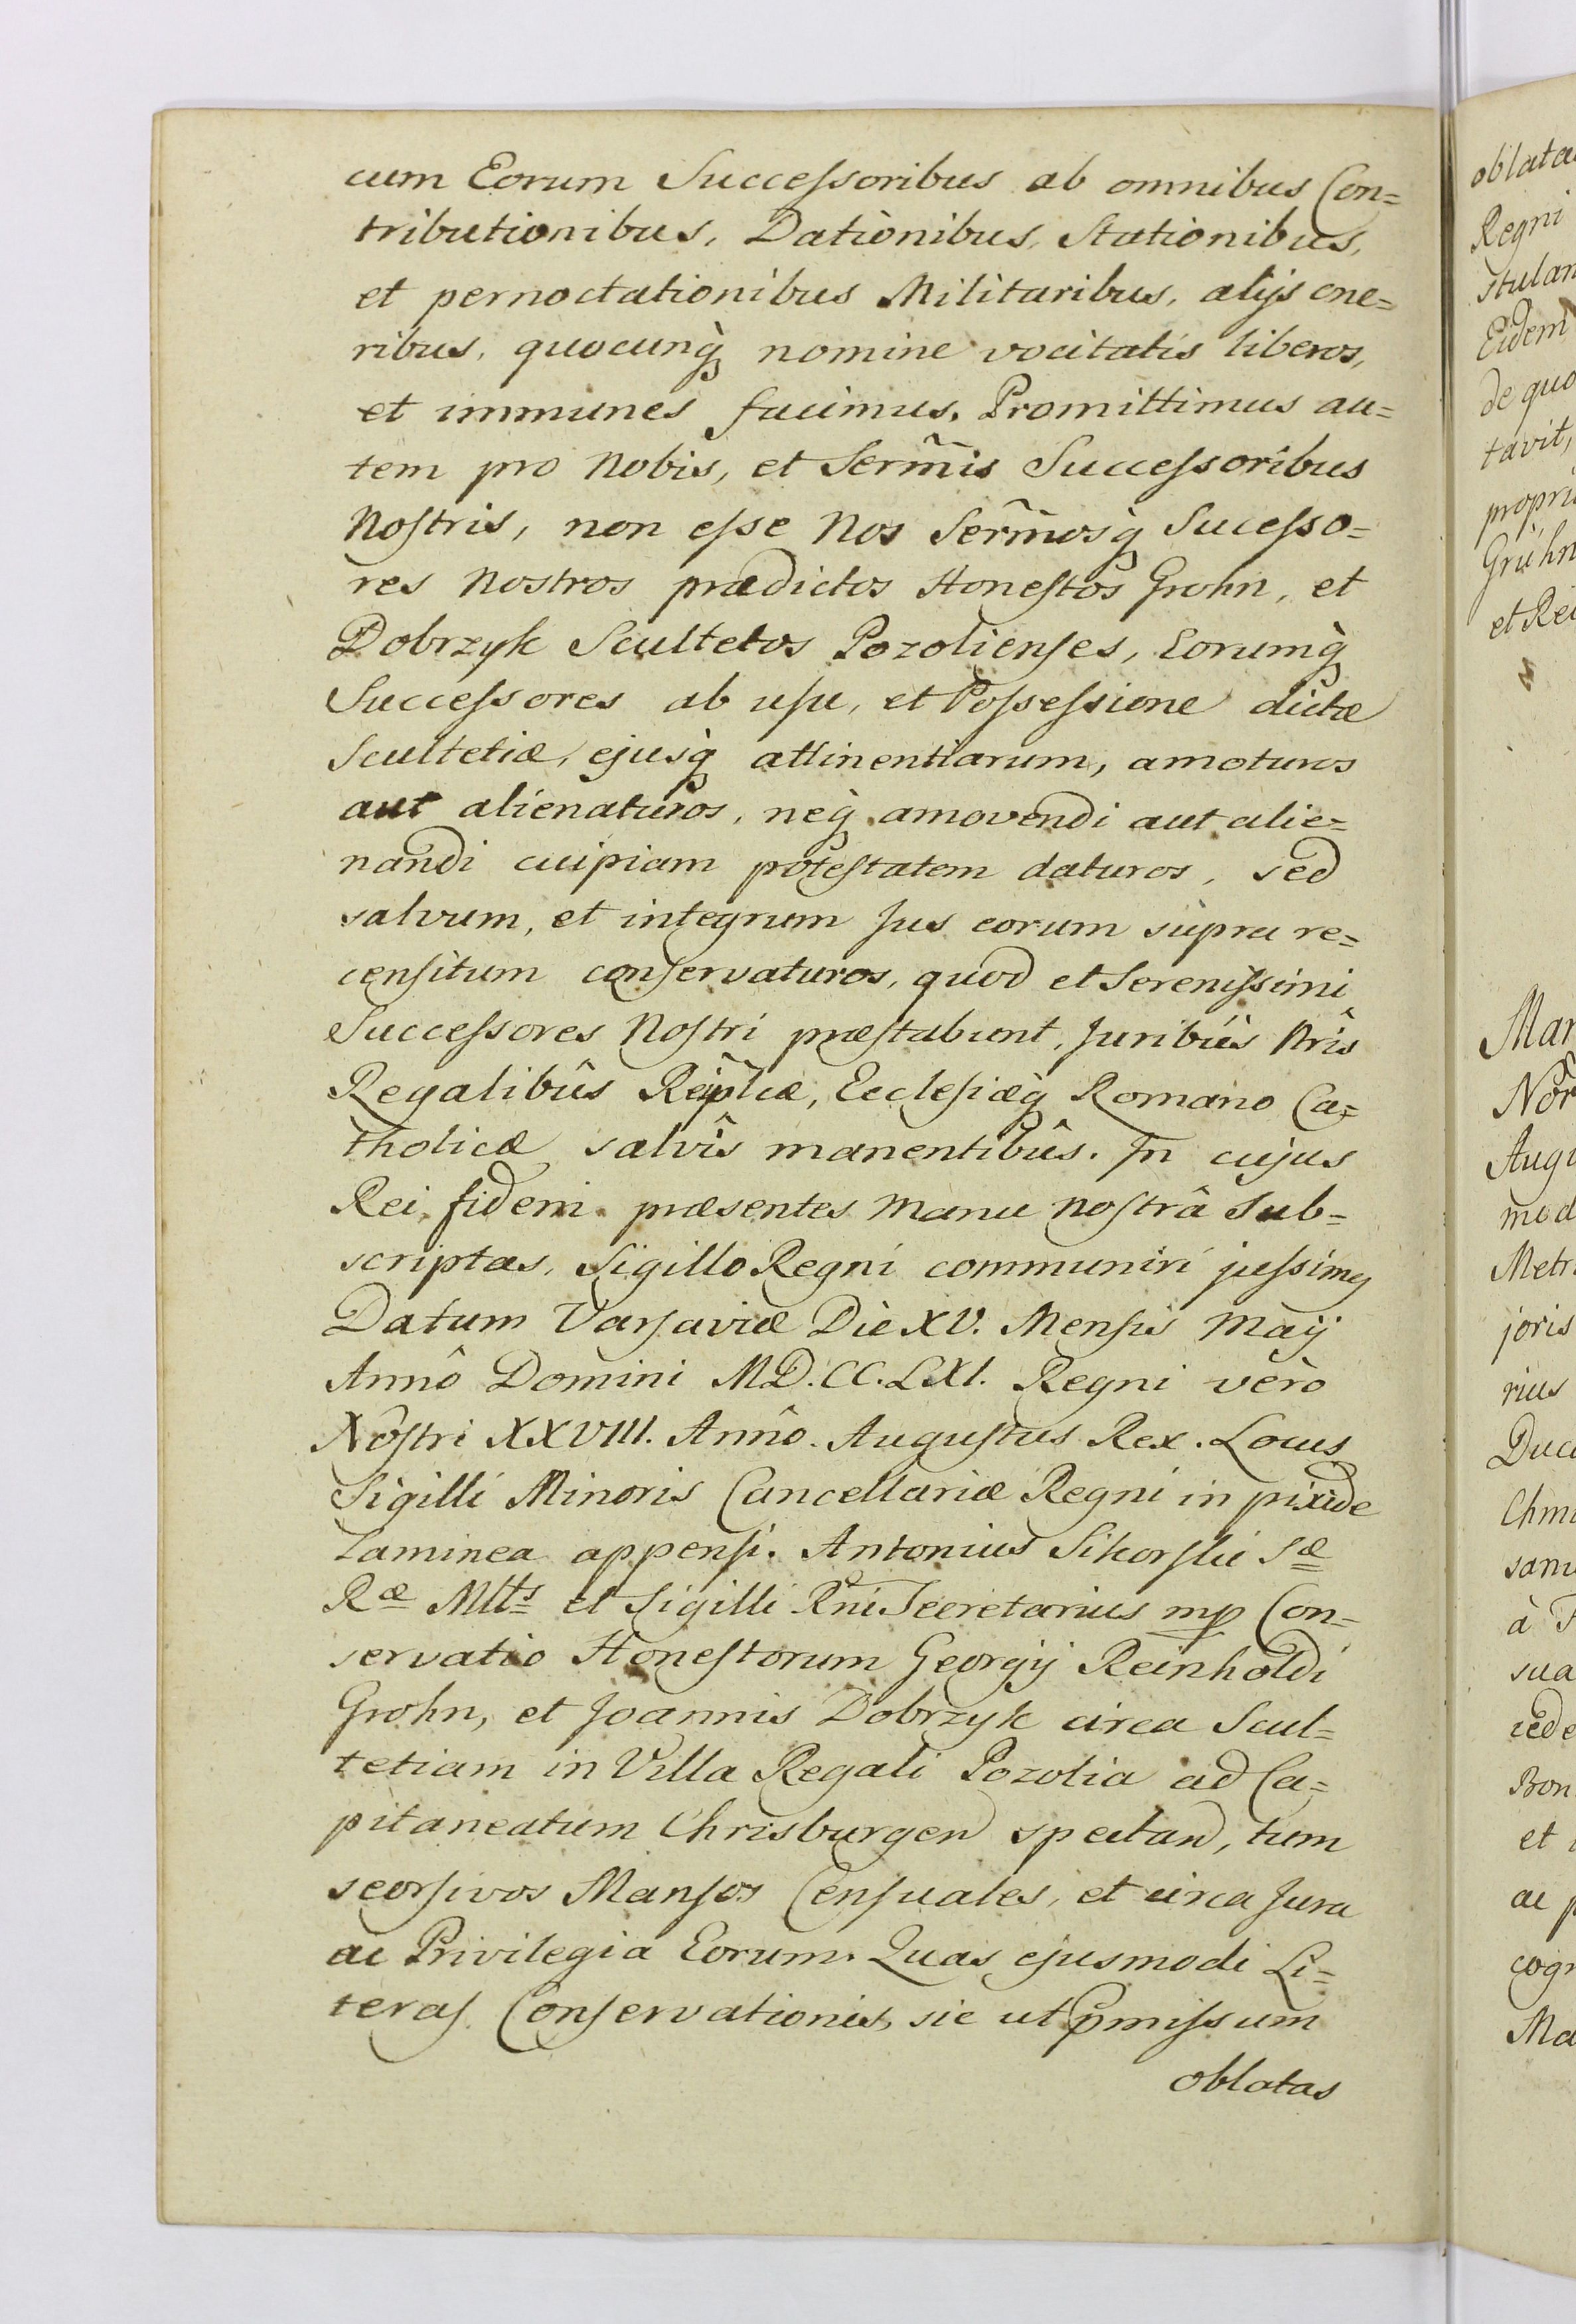 cum Eorum Successoribus ab omnibus Con=
tributionibus, Dationibus, Stationibus,
et pernoctationibus Militaribus, alijs one=
ribus, quocunq̀ nomine vocitatis liberos,
et immunes facimus. Promittimus au=
tem pro Nobis, et Serm̃is Successoribus
Nostris, non esse Nos Serm̃osq̀ Sucesso=
res Nostros prædictos Honestos Grohn, et
Dobrzyk Scultetos Pozolienses, Eorumq̀
Successores ab usu, et Possessione dictæ
Scultetiæ, ejusq̀ attinentiarum, amoturos
aut alienaturos, neq̀ amovendi aut alie=
nandi cuipiam potestatem daturos, sed
salvum, et integrum Jus eorum supra re=
censitum conservaturos, quod et Serenissimi
Successores Nostri præstabunt, Juribûs Nrîs
Regalibûs Reip̃lcæ, Ecclesiæq̀ Romano Ca=
tholicæ salvîs manentibûs. In cujus
Rei fidem præsentes Manu Nostrâ Sub=
scriptas, Sigillo Regni communiri jussimꝰ
Datum Varsaviæ Die XV. Mensis Maij
Annô Domini MD.CC.LXI. Regni verò
Nostri XXVIII. Annô. Augustus Rex. Locus
Sigilli Minoris Cancellariæ Regni in pixide
Laminea appensi. Antonius Sikorski Sæ
Ræ Mtts et Sigilli Rni Secretarius mp Con=
servatio Honestorum Georgij Reinholdi
Grohn, et Joannis Dobrzyk circa Scul=
tetiam in Villa Regali Pozolia ad Ca=
pitaneatum Chrisburgen spectan, tum
seorsivos Mansos Censuales, et circa Jura
ac Privilegia Eorum. Quas ejusmodi Li=
teras Conservationis, sic ut p̃missum
oblatas
oblata
Regni
stulan
Eidem
de quo
tavit,
propri
Gruhn
et Rei
Mar
Nor
Augu
mod
Metr
joris
rius
Duca
Chm
sam
à
sua
cede
Bon
et
ac p
cogn
Ma